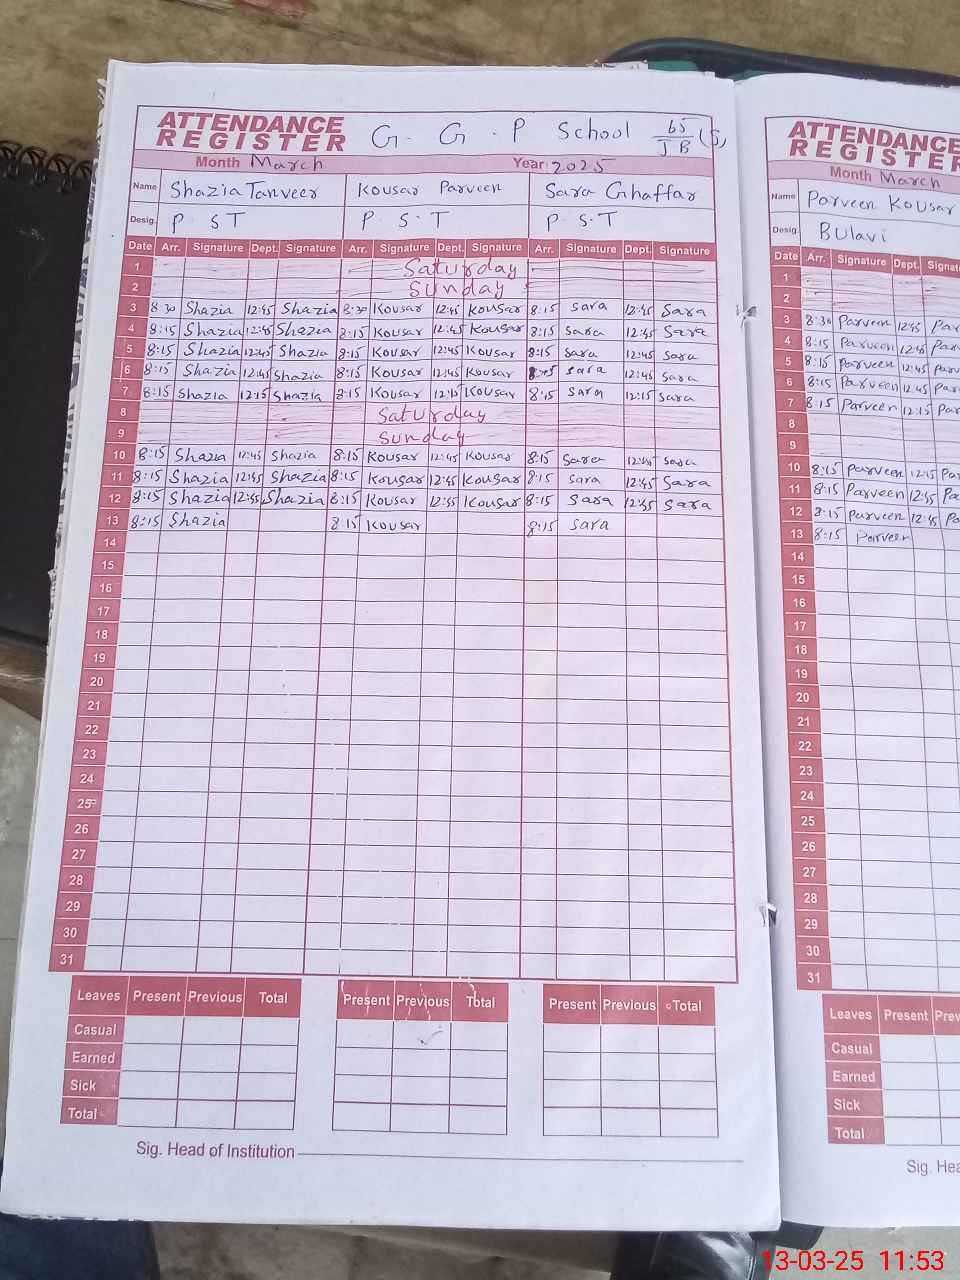 ATTENDANCE REGISTER G. G. P School 65/JB (S)
Month March Year 2025
Name Shazia Tanveer Kousar Parveen Sara Ghaffar
Desig. P. S T P. S. T P. S. T
Date Arr. Signature Dept. Signature Arr. Signature Dept. Signature Arr. Signature Dept. Signature
1 Saturday
2 Sunday
3 8:30 Shazia 12:45 Shazia 8:30 Kousar 12:45 Kousar 8:15 Sara 12:45 Sara
4 8:15 Shazia 12:45 Shazia 8:15 Kousar 12:45 Kousar 8:15 Sara 12:45 Sara
5 8:15 Shazia 12:45 Shazia 8:15 Kousar 12:45 Kousar 8:15 Sara 12:45 Sara
6 8:15 Shazia 12:45 Shazia 8:15 Kousar 12:45 Kousar Sara 12:45 Sara
7 8:15 Shazia 12:15 Shazia 8:15 Kousar 12:15 Kousar 8:15 Sara 12:15 Sara
8 Saturday
9 Sunday
10 8:15 Shazia 12:45 Shazia 8:15 Kousar 12:45 Kousar 8:15 Sara 12:45 Sara
11 8:15 Shazia 12:45 Shazia 8:15 Kousar 12:45 Kousar 8:15 Sara 12:45 Sara
12 8:15 Shazia 12:45 Shazia 8:15 Kousar 12:45 Kousar 8:15 Sara 12:45 Sara
13 8:15 Shazia 8:15 Kousar 8:15 Sara
14
15
16
17
18
19
20
21
22
23
24
25
26
27
28
29
30
31
Leaves Present Previous Total Present Previous Total Present Previous Total
Casual
Earned
Sick
Total
Sig. Head of Institution
ATTENDANCE REGISTER
Month March
Name Parveen Kousar
Desig. BULavi
Date Arr. Signature Dept.
1
2
3 8:30 Parveen 12:45
4 8:15 Parveen 12:45
5 8:15 Parveen 12:45
6 8:15 Parveen 12:45
7 8:15 Parveen 12:15
8
9
10 8:15 Parveen 12:15
11 8:15 Parveen 12:45
12 8:15 Parveen 12:45
13 8:15 Parveen
14
15
16
17
18
19
20
21
22
23
24
25
26
27
28
29
30
31
Leaves Present
Casual
Earned
Sick
Total
Sig.
13-03-25 11:53